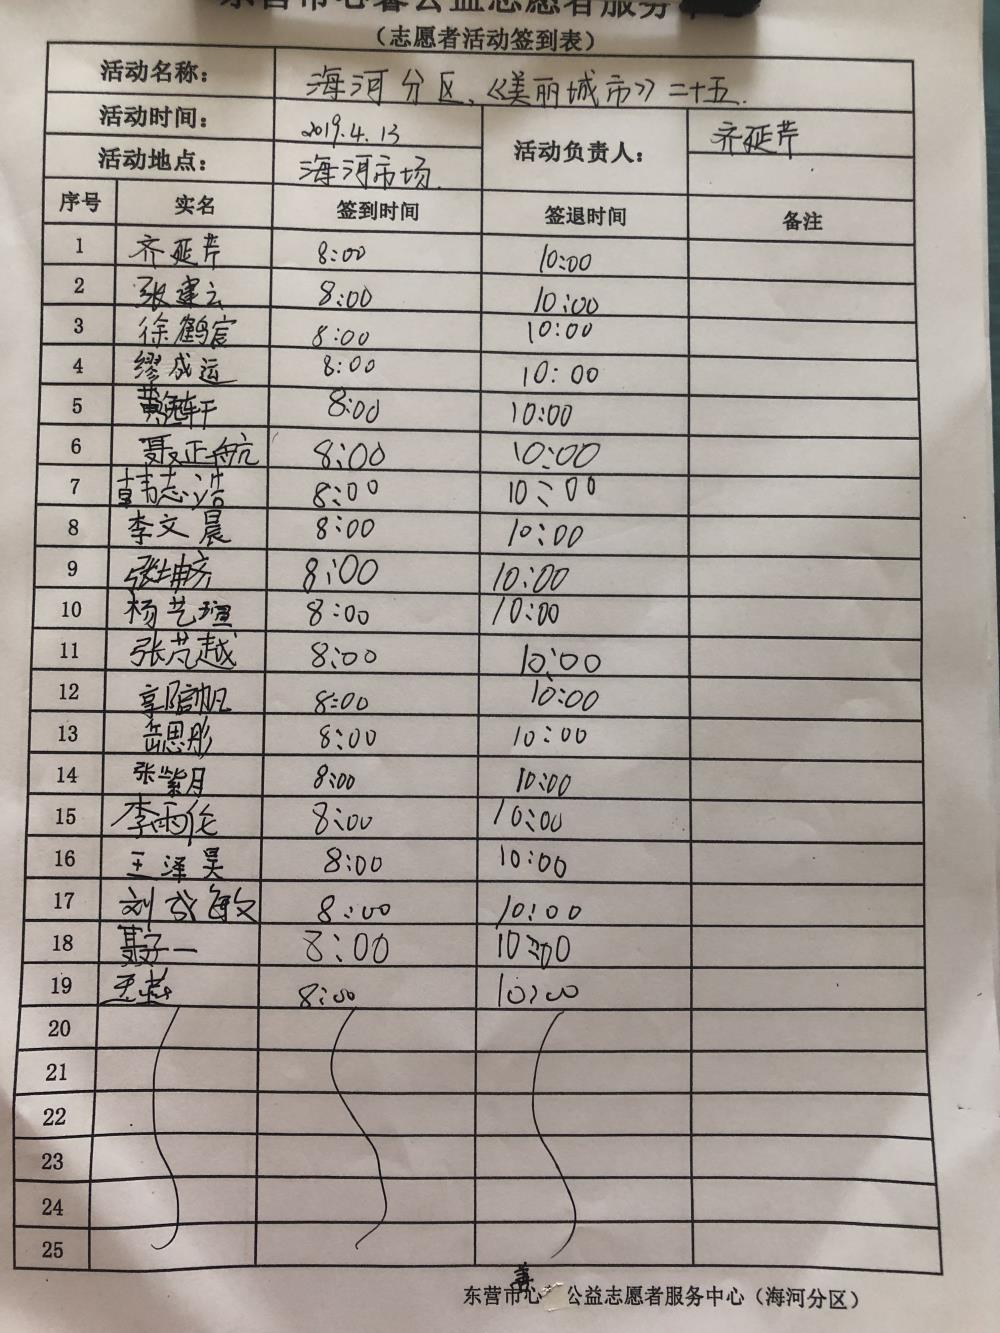 东营市心馨公益志愿者服务
（志愿者活动签到表）
活动名称： 海河分区、《美丽城市》二十五.
活动时间： 2019.4.13 活动负责人： 齐延芹
活动地点： 海河市场.
序号 实名 签到时间 签退时间 备注
1 齐延芹 8:00 10:00
2 张建云 8:00 10:00
3 徐鹤宸 8:00 10:00
4 缪成运 8:00 10:00
5 黄 轩 8:00 10:00
6 聂正航 8:00 10:00
7 韩志浩 8:00 10:00
8 李文晨 8:00 10:00
9 张坤 8:00 10:00
10 杨艺瑄 8:00 10:00
11 张芃越 8:00 10:00
12 8:00 10:00
13 岳思彤 8:00 10:00
14 张紫月 8:00 10:00
15 李雨伦 8:00 10:00
16 王泽昊 8:00 10:00
17 刘成敏 8:00 10:00
18 聂子一 8:00 10:00
19 8:00 10:00
20
21
22
23
24
25
东营市心 公益志愿者服务中心（海河分区）